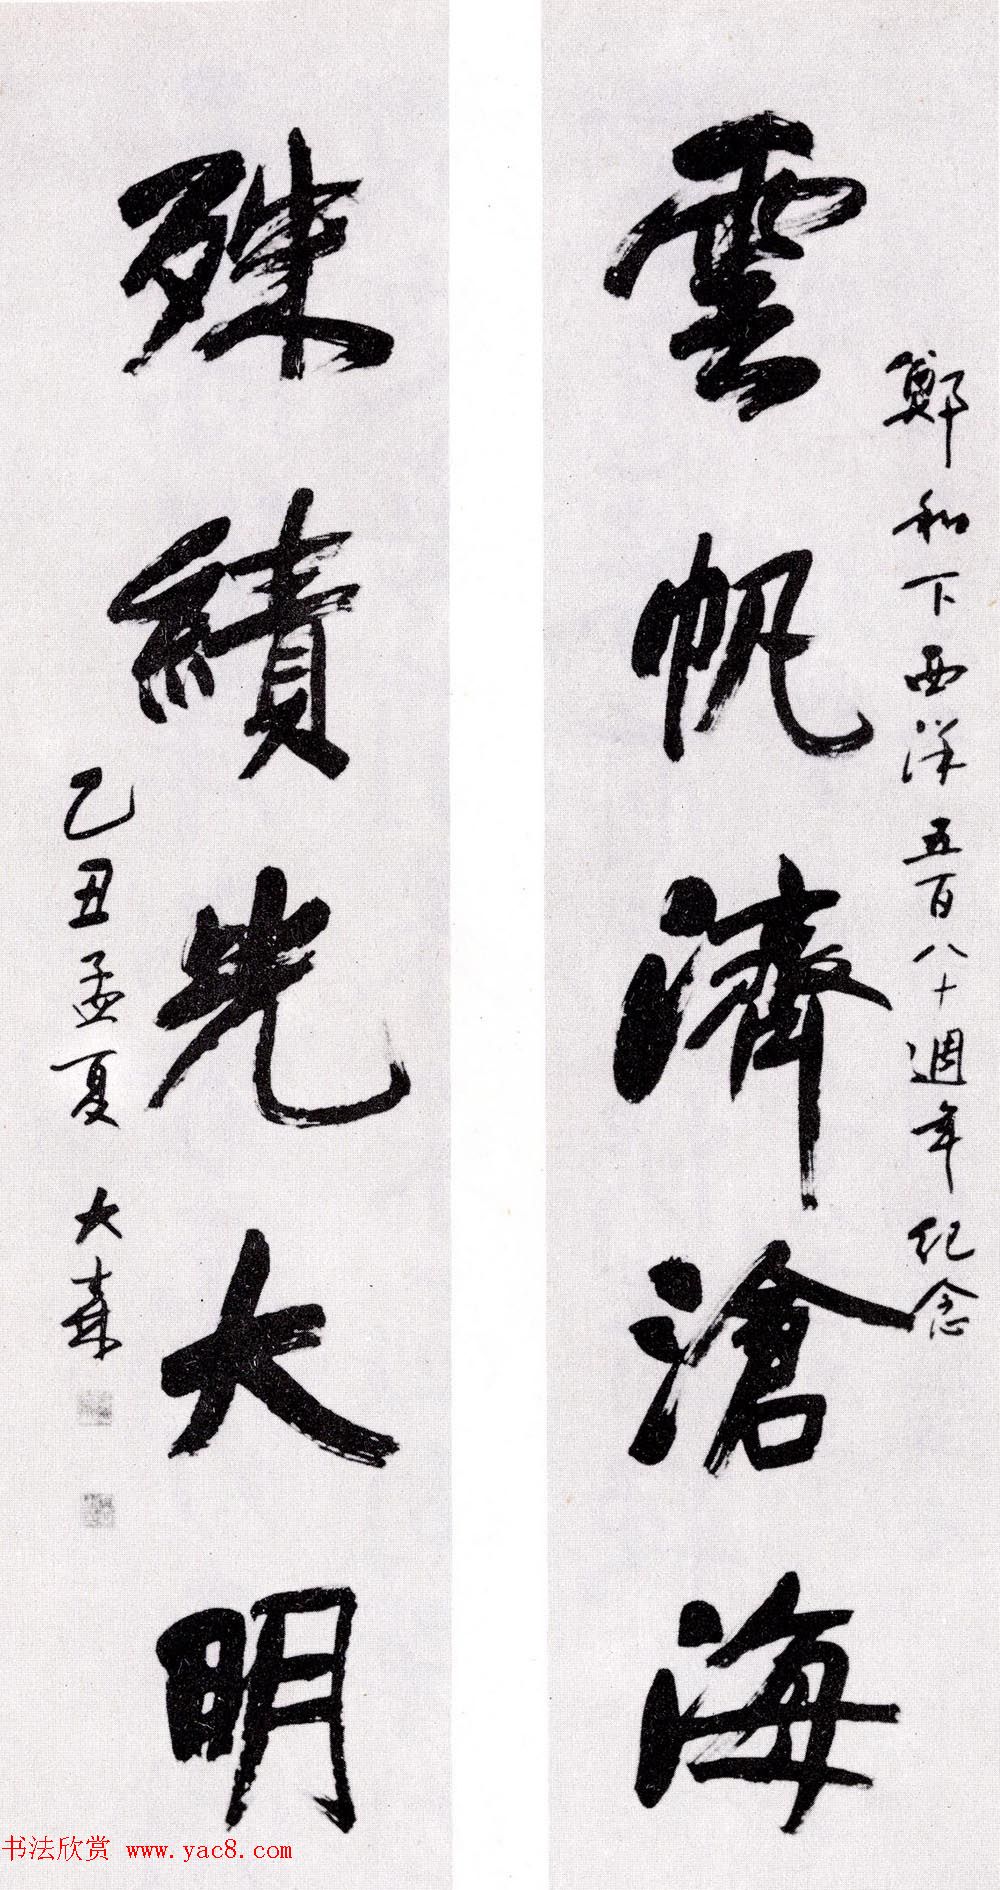 鄭和下西洋五百八十週年紀念
雲帆濟滄海
殊績光大明
乙丑孟夏 大壽
书法欣赏 www.yac8.com